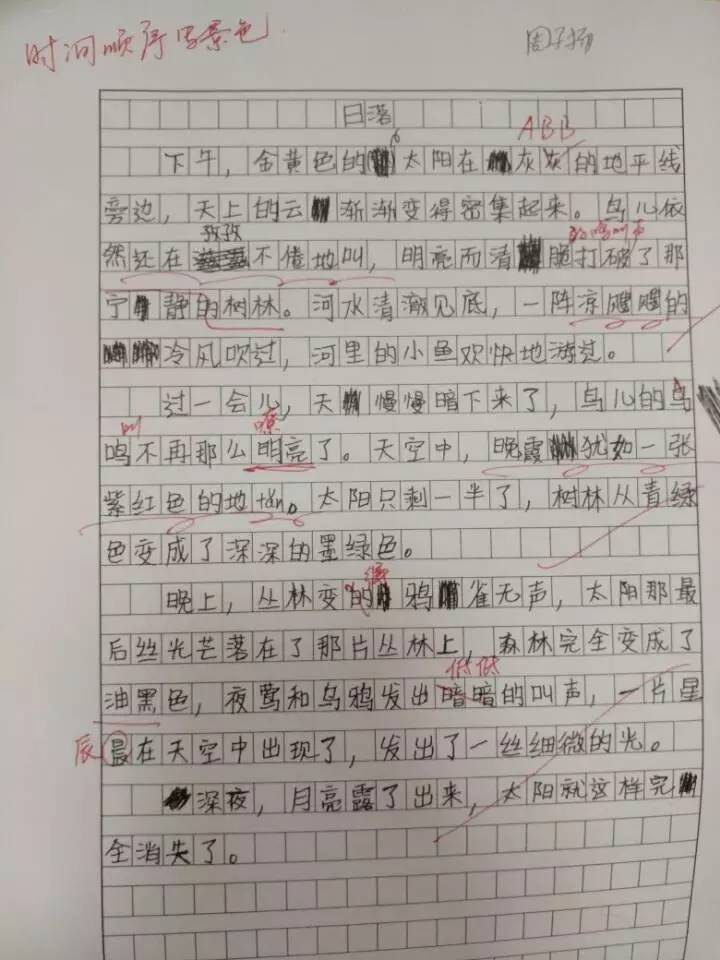 时间顺序写景色
周子扬
日落
ABB
下午，金黄色的太阳在灰灰的地平线
旁边，天上的云渐渐变得密集起来。鸟儿依
孜孜
然还在不倦地叫，明亮而清脆打破了那
宁静的树林。河水清澈见底，一阵凉飕飕的
冷风吹过，河里的小鱼欢快地游过。
过一会儿，天慢慢暗下来了，鸟儿的鸟
叫 嘹
鸣不再那么明亮了。天空中，晚霞犹如一张
紫红色的地tǎn。太阳只剩一半了，树林从青绿
色变成了深深的墨绿色。
得
晚上，丛林变的鸦雀无声，太阳那最
后丝光芒落在了那片丛林上，森林完全变成了
低低
油黑色，夜莺和乌鸦发出暗暗的叫声，一片星
辰
晨在天空中出现了，发出了一丝细微的光。
深夜，月亮露了出来，太阳就这样完
全消失了。